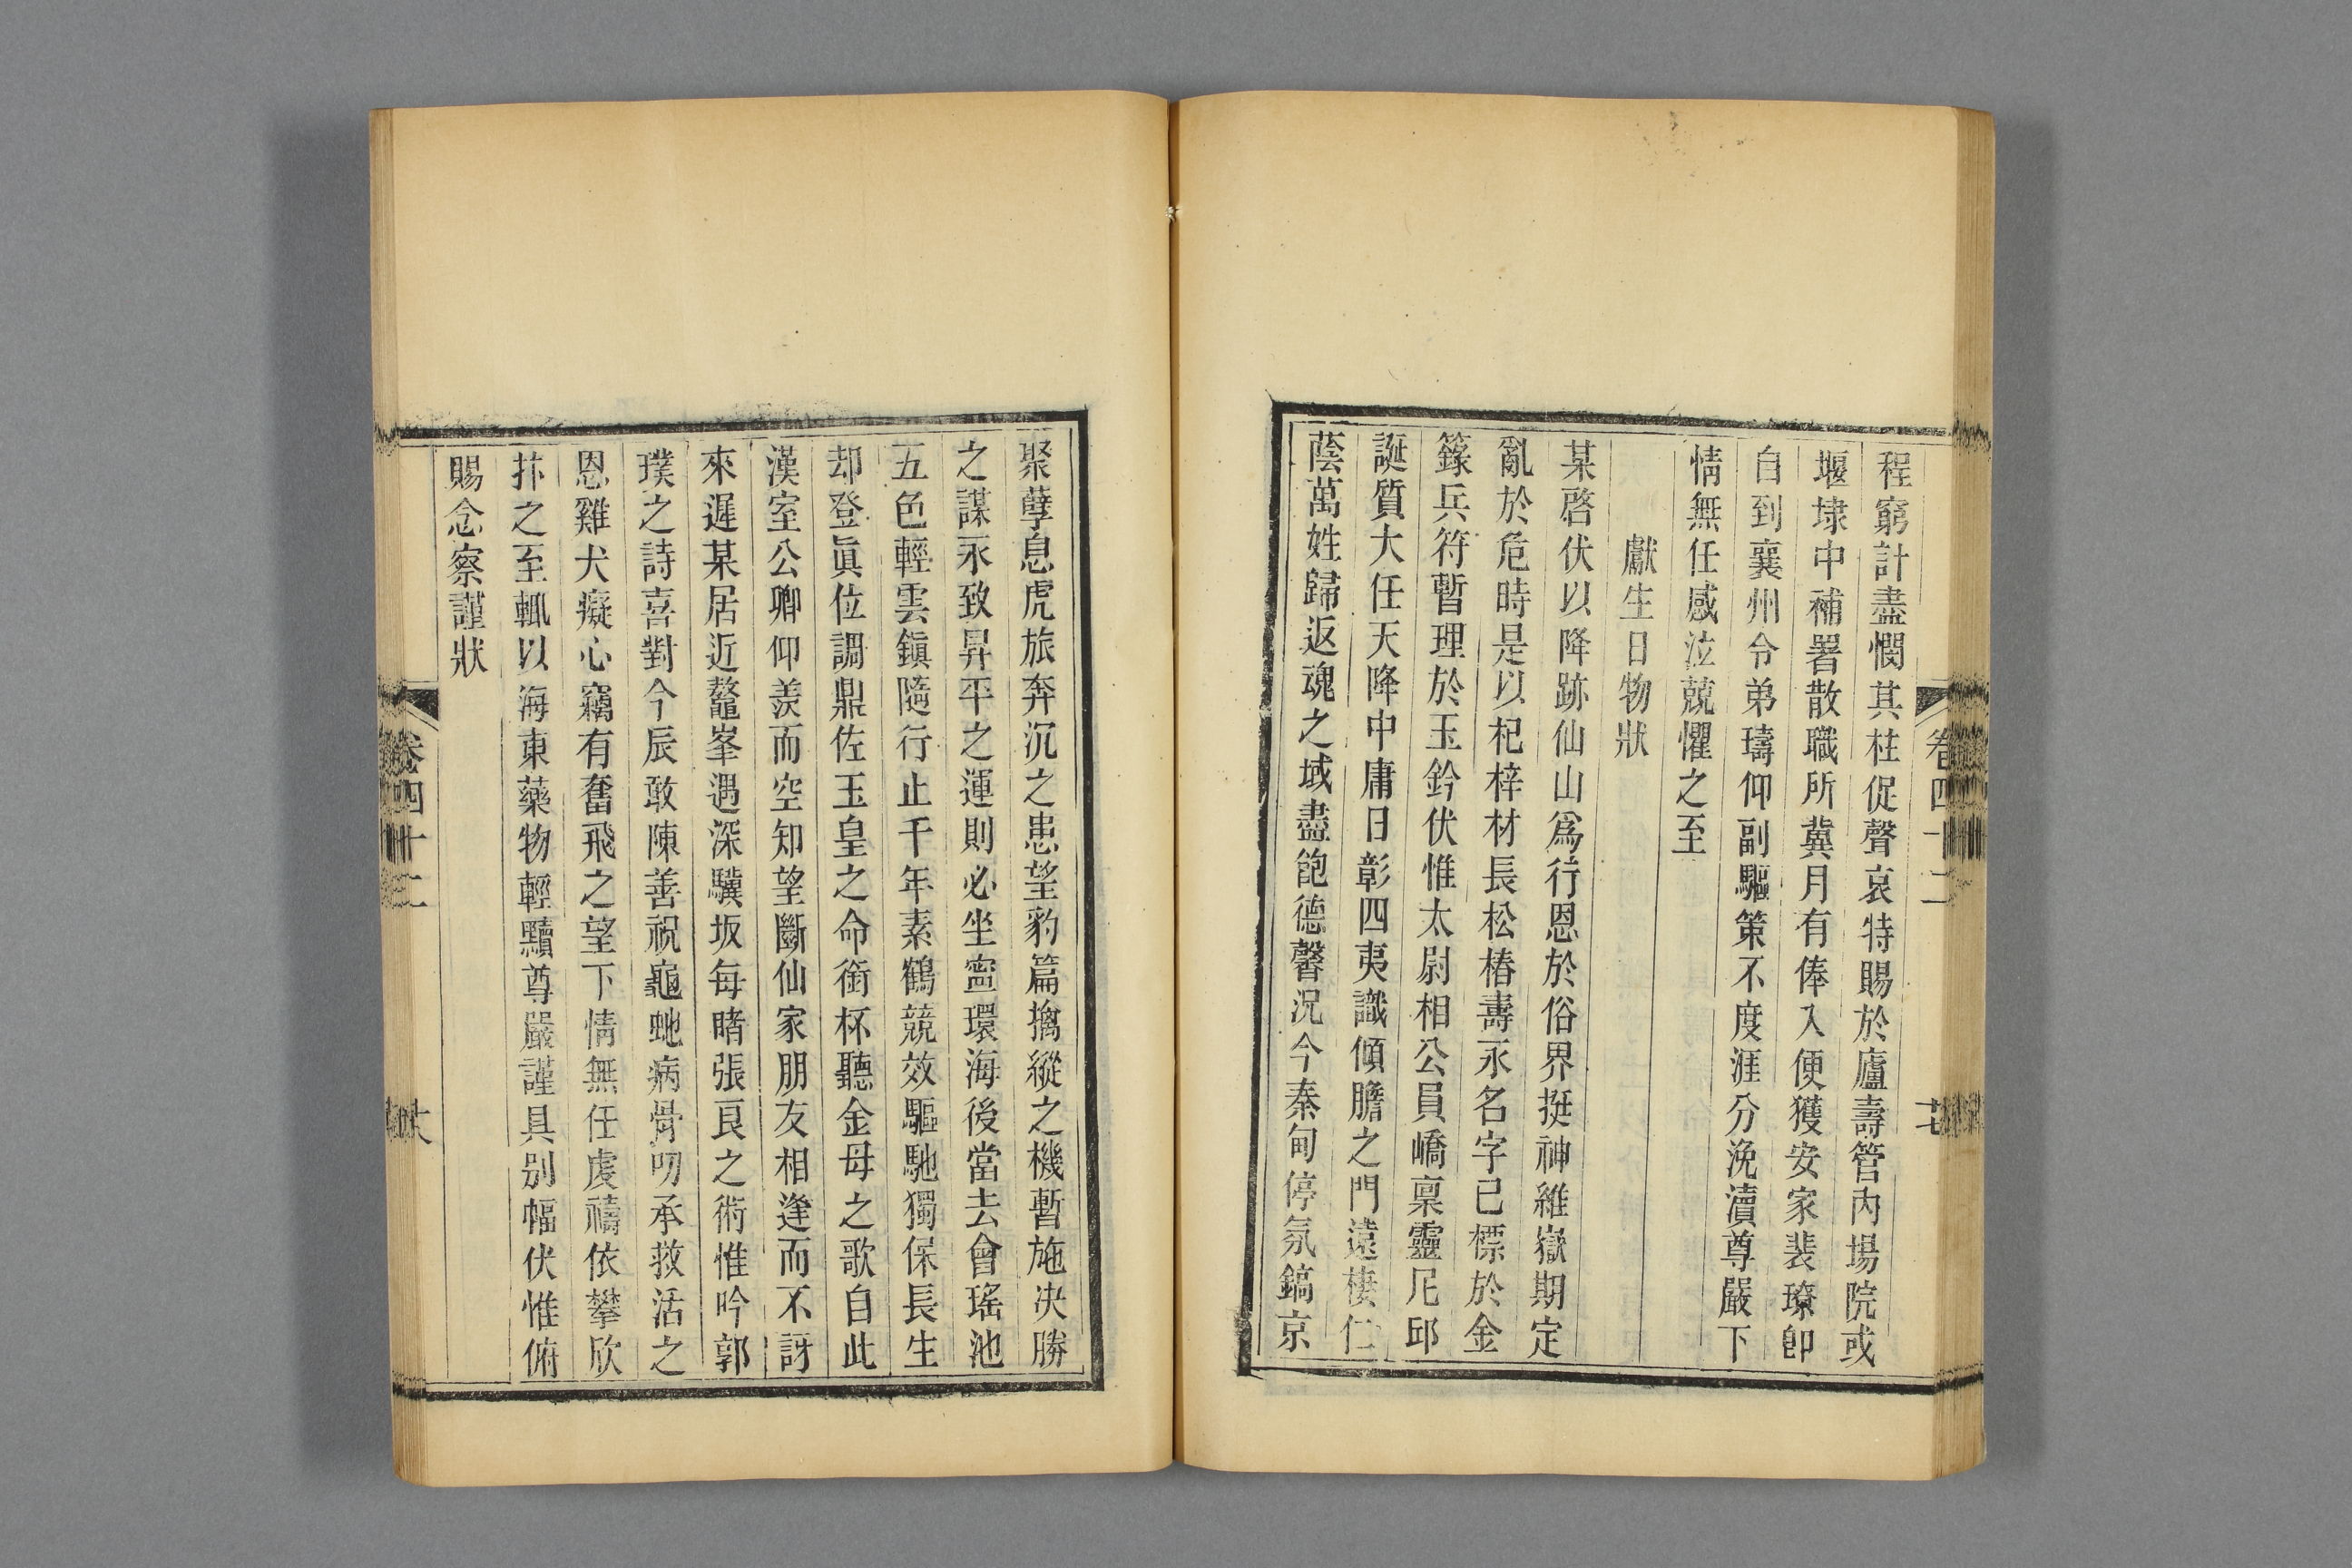 程窮計盡憫其柱促聲哀特賜於廬壽管內場院或
堰埭中補署散職所冀月有俸入便獲安家裴璙卽
自到襄州令弟璹仰副驅策不度涯分浼瀆尊嚴下
情無任感泣兢懼之至
獻生日物狀
某啓伏以降跡仙山爲行恩於俗界挺神維嶽期定
亂於危時是以杞梓材長松椿壽永名字已標於金
籙兵符暫理於玉鈐伏惟太尉相公員嶠稟靈尼邱
誕質大任天降中庸日彰四夷讖傾膽之門遠棲仁
蔭萬姓歸返魂之域盡飽德馨況今秦甸停氛鎬京
卷四十二
十七
聚孽息虎旅奔沉之患望豹篇擒縱之機暫施决勝
之謀永致昇平之運則必坐寍環海後當去會瑤池
五色輕雲鎭隨行止千年素鶴競效驅馳獨保長生
却登眞位調鼎佐玉皇之命銜杯聽金母之歌自此
漢室公卿仰羨而空知望斷仙家朋友相逢而不訝
來遲某居近鼇峯遇深驥坂每睹張良之術惟吟郭
璞之詩喜對今辰敢陳善祝龜虵病骨叨承救活之
恩雞犬癡心竊有奮飛之望下情無任虔禱依攀欣
抃之至輒以海東藥物輕黷尊嚴謹具別幅伏惟俯
賜念察謹狀
卷四十二